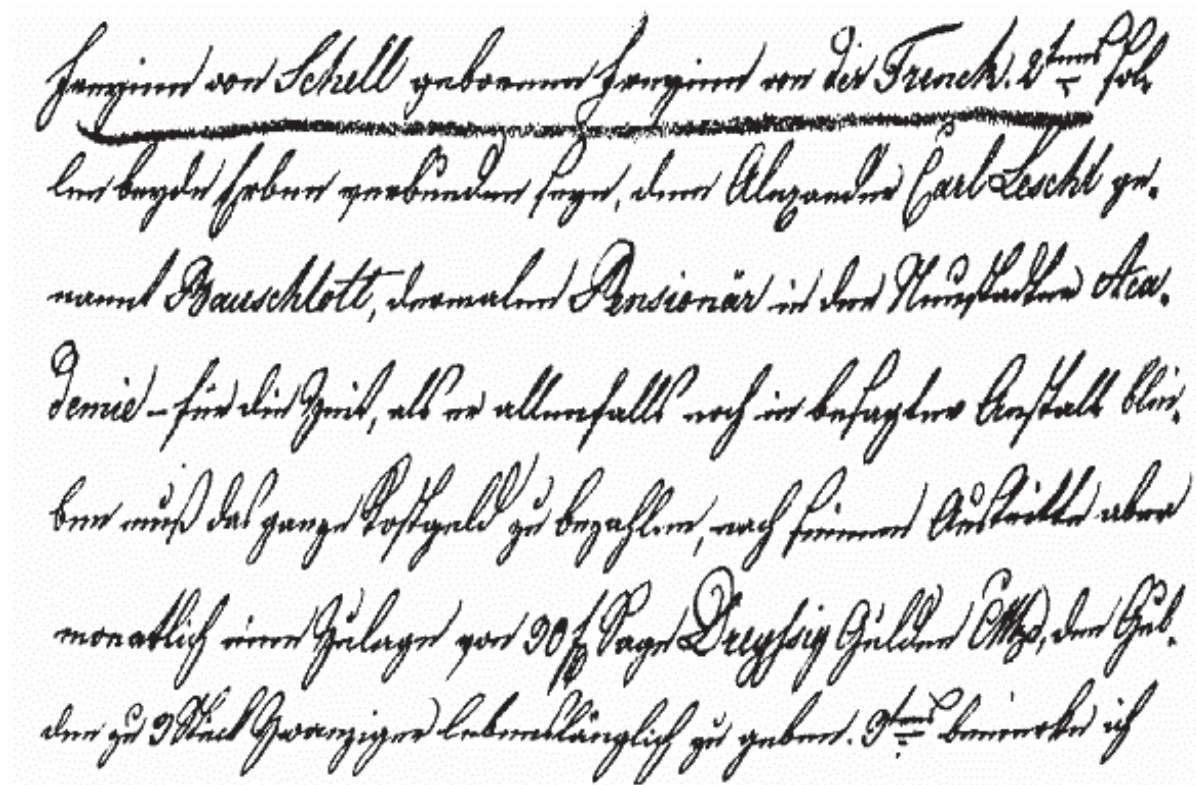 Freyinn von Schell gebornene Freyinn von der Trenck. 2tens sol-
len beyde Erben verbunden seyn, dem Alexander Carl Leschl ge-
nannt Bauschlott, dermalen Pensionär in der Neustadter Aca-
demie – für die Zeit, als er allenfalls noch in besagter Anstalt blei-
ben muß das ganze Kostgeld zu bezahlen, nach seinem Austritte aber
monatlich eine Zulage von 30 f Sage Dreyssig Gulden CMz, den Gul-
den zu 3 Stück Zwanziger lebenslänglich zu geben. 3tens bemerke ich